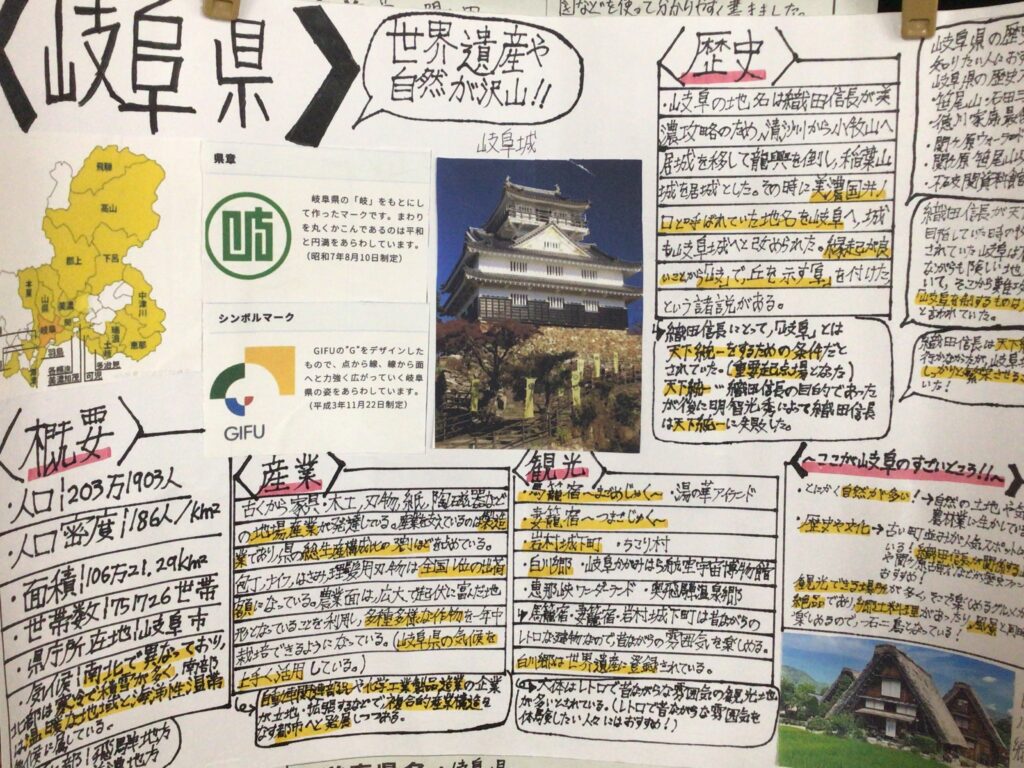 岐阜県
世界遺産や
自然が沢山!!
岐阜城
飛騨
高山
郡上
下呂
本巣
山県
美濃
関
中津川
岐阜
瑞浪
恵那
土岐
羽島
各務原
美濃加茂
可児
多治見
県章
岐阜県の「岐」をもとにし
て作ったマークです。まわり
を丸くかこんであるのは平和
と円満をあらわしています。
(昭和7年8月10日制定)
シンボルマーク
GIFUの"G"をデザインした
もので、点から線、線から面
へと力強く広がっていく岐阜
県の姿をあらわしています。
(平成3年11月22日制定)
GIFU
歴史
・岐阜の地名は織田信長が美
濃攻略のため、清洲から小牧山へ
居城を移して龍興を倒し、稲葉山
城を居城とした。その時に美濃国井ノ
口と呼ばれていた地名を岐阜へ、城
も岐阜城へと改められた。縁起が良
いことから「岐」で、丘を示す「阜」を付けた
という諸説がある。
織田信長にとって、「岐阜」とは
天下統一をするための条件だと
されていた。(重要起点場となった)
天下統一…織田信長の目的であった
が後に明智光秀によって織田信長
は天下統一に失敗した。
岐阜県の歴
知りたい人にお
岐阜県の歴史
・笹尾山・石田三
・徳川家康最
・関ヶ原ウォーラ
・関ヶ原 笹尾山
・不破関資料館
織田信長が天
目指していた時の
されていた岐阜は
ながらも険しい地
いて、そこから難
山岐阜を制するものは
と言われていた。
織田信長は天下
しっかりと繁栄させる
いた!
概要
・人口|203万1903人
・人口密度|186人/km²
・面積|106万21,29km²
・世帯数|75|726世帯
・県庁所在地|岐阜市
・気候|南北で異なっており、
北部は寒冷で積雪が多く、南部
は温暖な地域と、海洋性温帯
気候に属している。
産業
古くから家具・木工、刃物、紙、陶磁器など
の地場産業が発達している。産業を支えているのは製造
業であり県の総生産構成比の
包丁、ナイフ、はさみ、理髪用刃物は全国1位の出荷
額になっている。農業面は、広大で起伏に富んだ地
形となっていることを利用し、多種多様な作物を一年中
栽培できるようになっている。(岐阜県の気候を
上手く活用している。)
や化学工業製品 の企業
が立地・拡張するなどで、複合的産業構造と
なす都市へと発展しつつある。
観光
・馬籠宿〜まごめじゅく〜 ・湯の華アイランド
・妻籠宿〜つまごじゅく〜
・岩村城下町 ・ちこり村
・白川郷 ・岐阜かかみがはら航空宇宙博物館
・恵那峡ワンダーランド ・奥飛騨温泉郷
・馬籠宿・妻籠宿・岩村城下町は昔ながらの
レトロな建物なので昔ながらの雰囲気を楽しめる。
白川郷は世界遺産に登録されている。
大体はレトロで昔ながらな雰囲気の観光地
が多いとされている。(レトロで昔ながらな雰囲気を
体感したい人々にはおすすめ!)
〜ここが岐阜のすごいところ!!〜
・とにかく自然が多い!→自然の土地や
農林業に生かしてい
・歴史や文化→古い町並みが人気でポット
おすすめ!
観光できる場所が多く、そこで楽しめるグルメが
絶品であり、郷土料理があったり、風景と
楽しめるので、一石二鳥となっている!